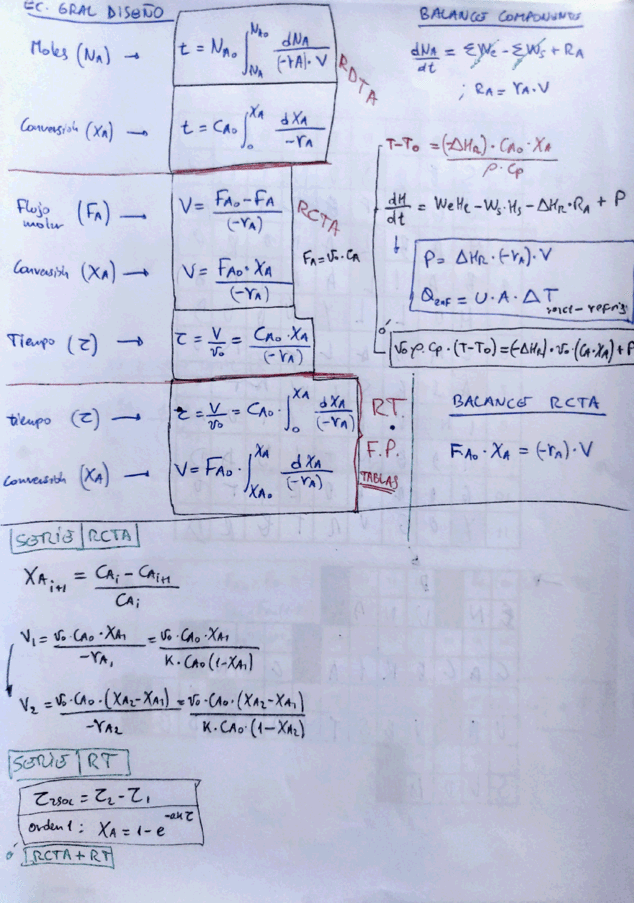 EC. GRAL DISEÑO
Moles (NA) → t = NAo ∫_NA^NAo dNA / (-rA)·V
RDTA
Conversión (XA) → t = CAo ∫_0^XA dXA / -rA
Flujo molar (FA) → V = FAo - FA / (-rA)
RCTA
FA = vo·CA
Conversión (XA) → V = FAo·XA / (-rA)
Tiempo (τ) → τ = V/vo = CAo·XA / (-rA)
tiempo (τ) → τ = V/vo = CAo·∫_0^XA dXA / (-rA)
RT.
F.P.
TABLAS
Conversión (XA) → V = FAo·∫_XAo^XA dXA / (-rA)
BALANCE COMPONENTES
dNA/dt = ΣWe - ΣWs + RA
; RA = rA·V
T-To = (-ΔHR)·CAo·XA / ρ·Cp
dH/dt = WeHe - Ws·Hs - ΔHR·RA + P
P = ΔHR·(-rA)·V
Q = U·A·ΔT
vo·ρ·Cp·(T-To) = (-ΔHR)·vo·(CA·XA) + P
BALANCE RCTA
FAo·XA = (-rA)·V
SERIE RCTA
XAi+1 = CAi - CAi+1 / CAi
V1 = vo·CAo·XA1 / -rA1 = vo·CAo·XA1 / K·CAo(1-XA1)
V2 = vo·CAo·(XA2-XA1) / -rA2 = vo·CAo·(XA2-XA1) / K·CAo·(1-XA2)
SERIE RT
= τ2 - τ1
orden 1: XA = 1 - e^-akτ
RCTA + RT